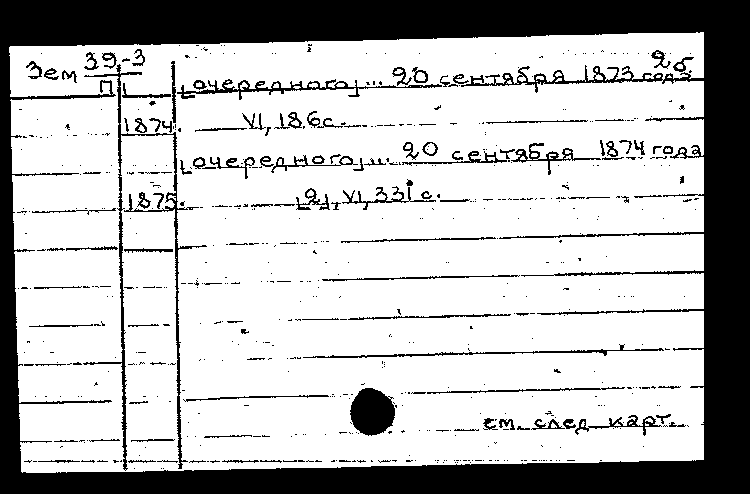 Зем 39-3
П 1
2б
[очередного]... 20 сентября 1873 года
1874. VI, 186с.
[очередного]... 20 сентября 1874 года
1875. [2], VI, 331 с.
см. след. карт.